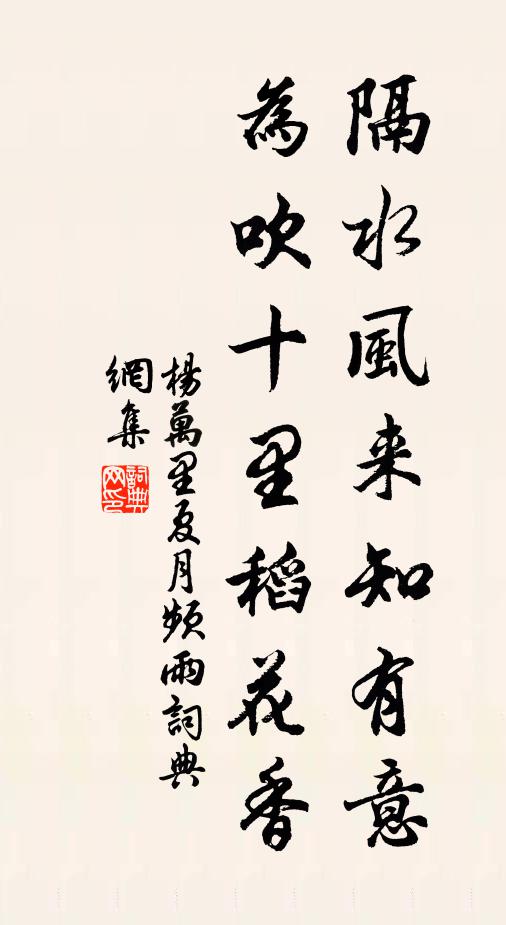 隔水風来知有意
為吹十里稻花香
楊萬里夏月頻雨詞典
網集
詞典
网印